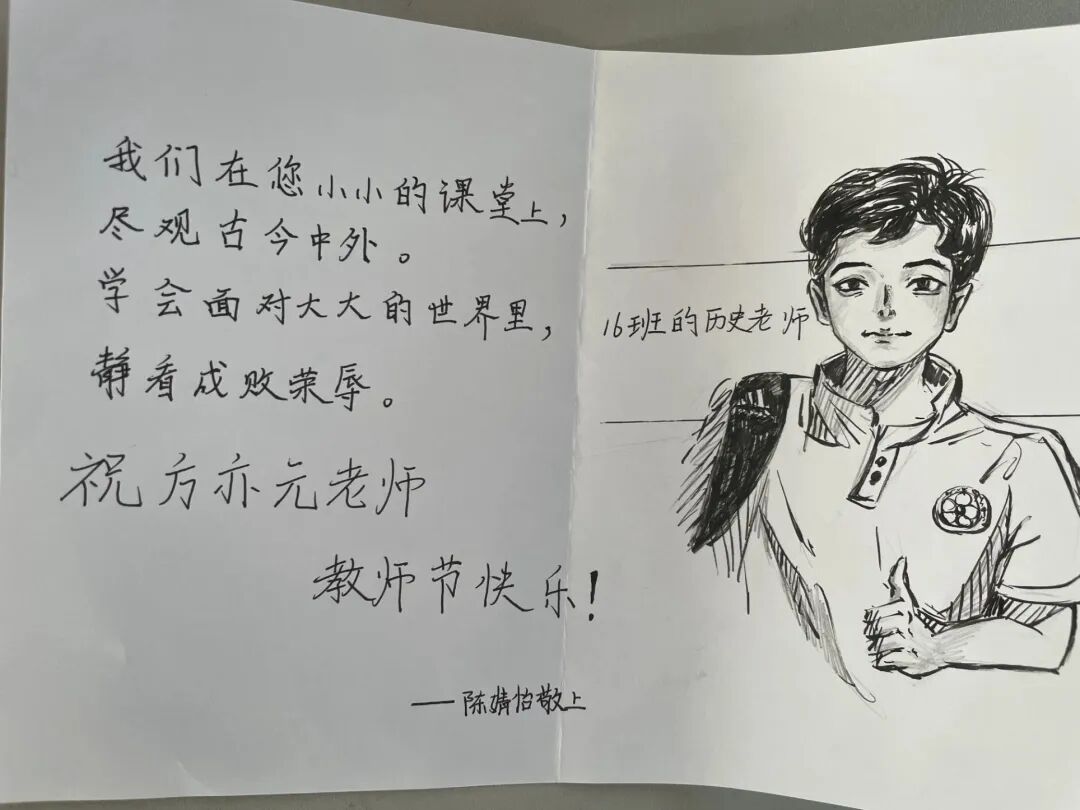 我们在您小小的课堂上，
尽观古今中外。
学会面对大大的世界里，
静看成败荣辱。
祝方亦元老师
教师节快乐！
——陈婧怡敬上
16班的历史老师